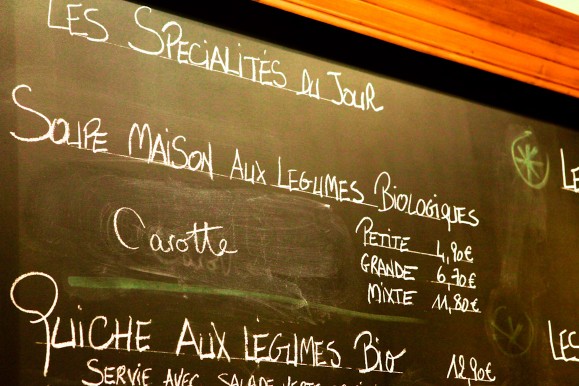 LES SPECIALITÉS DU JOUR
SOUPE MAISON AUX LEGUMES BIOLOGIQUES
Carotte
PETITE 4,90€
GRANDE 6,70€
MIXTE 11,80€
QUICHE AUX LEGUMES BIO 12,90€
SERVIE AVEC SALADE